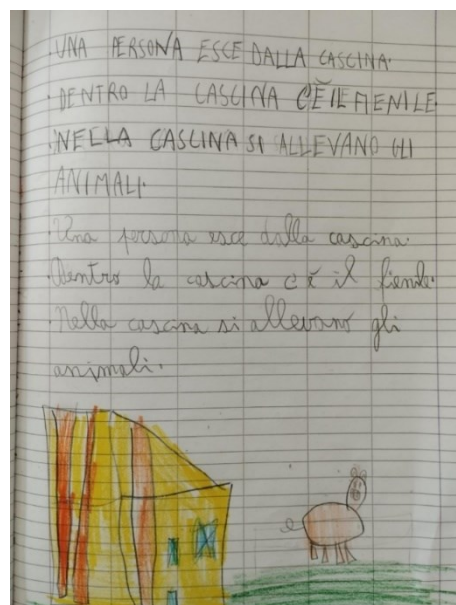 ·UNA PERSONA ESCE DALLA CASCINA·
·DENTRO LA CASCINA C'È IL FIENILE·
·NELLA CASCINA SI ALLEVANO GLI
ANIMALI·
·Una persona esce dalla cascina·
·Dentro la cascina c'è il fienile·
·Nella cascina si allevano gli
animali.